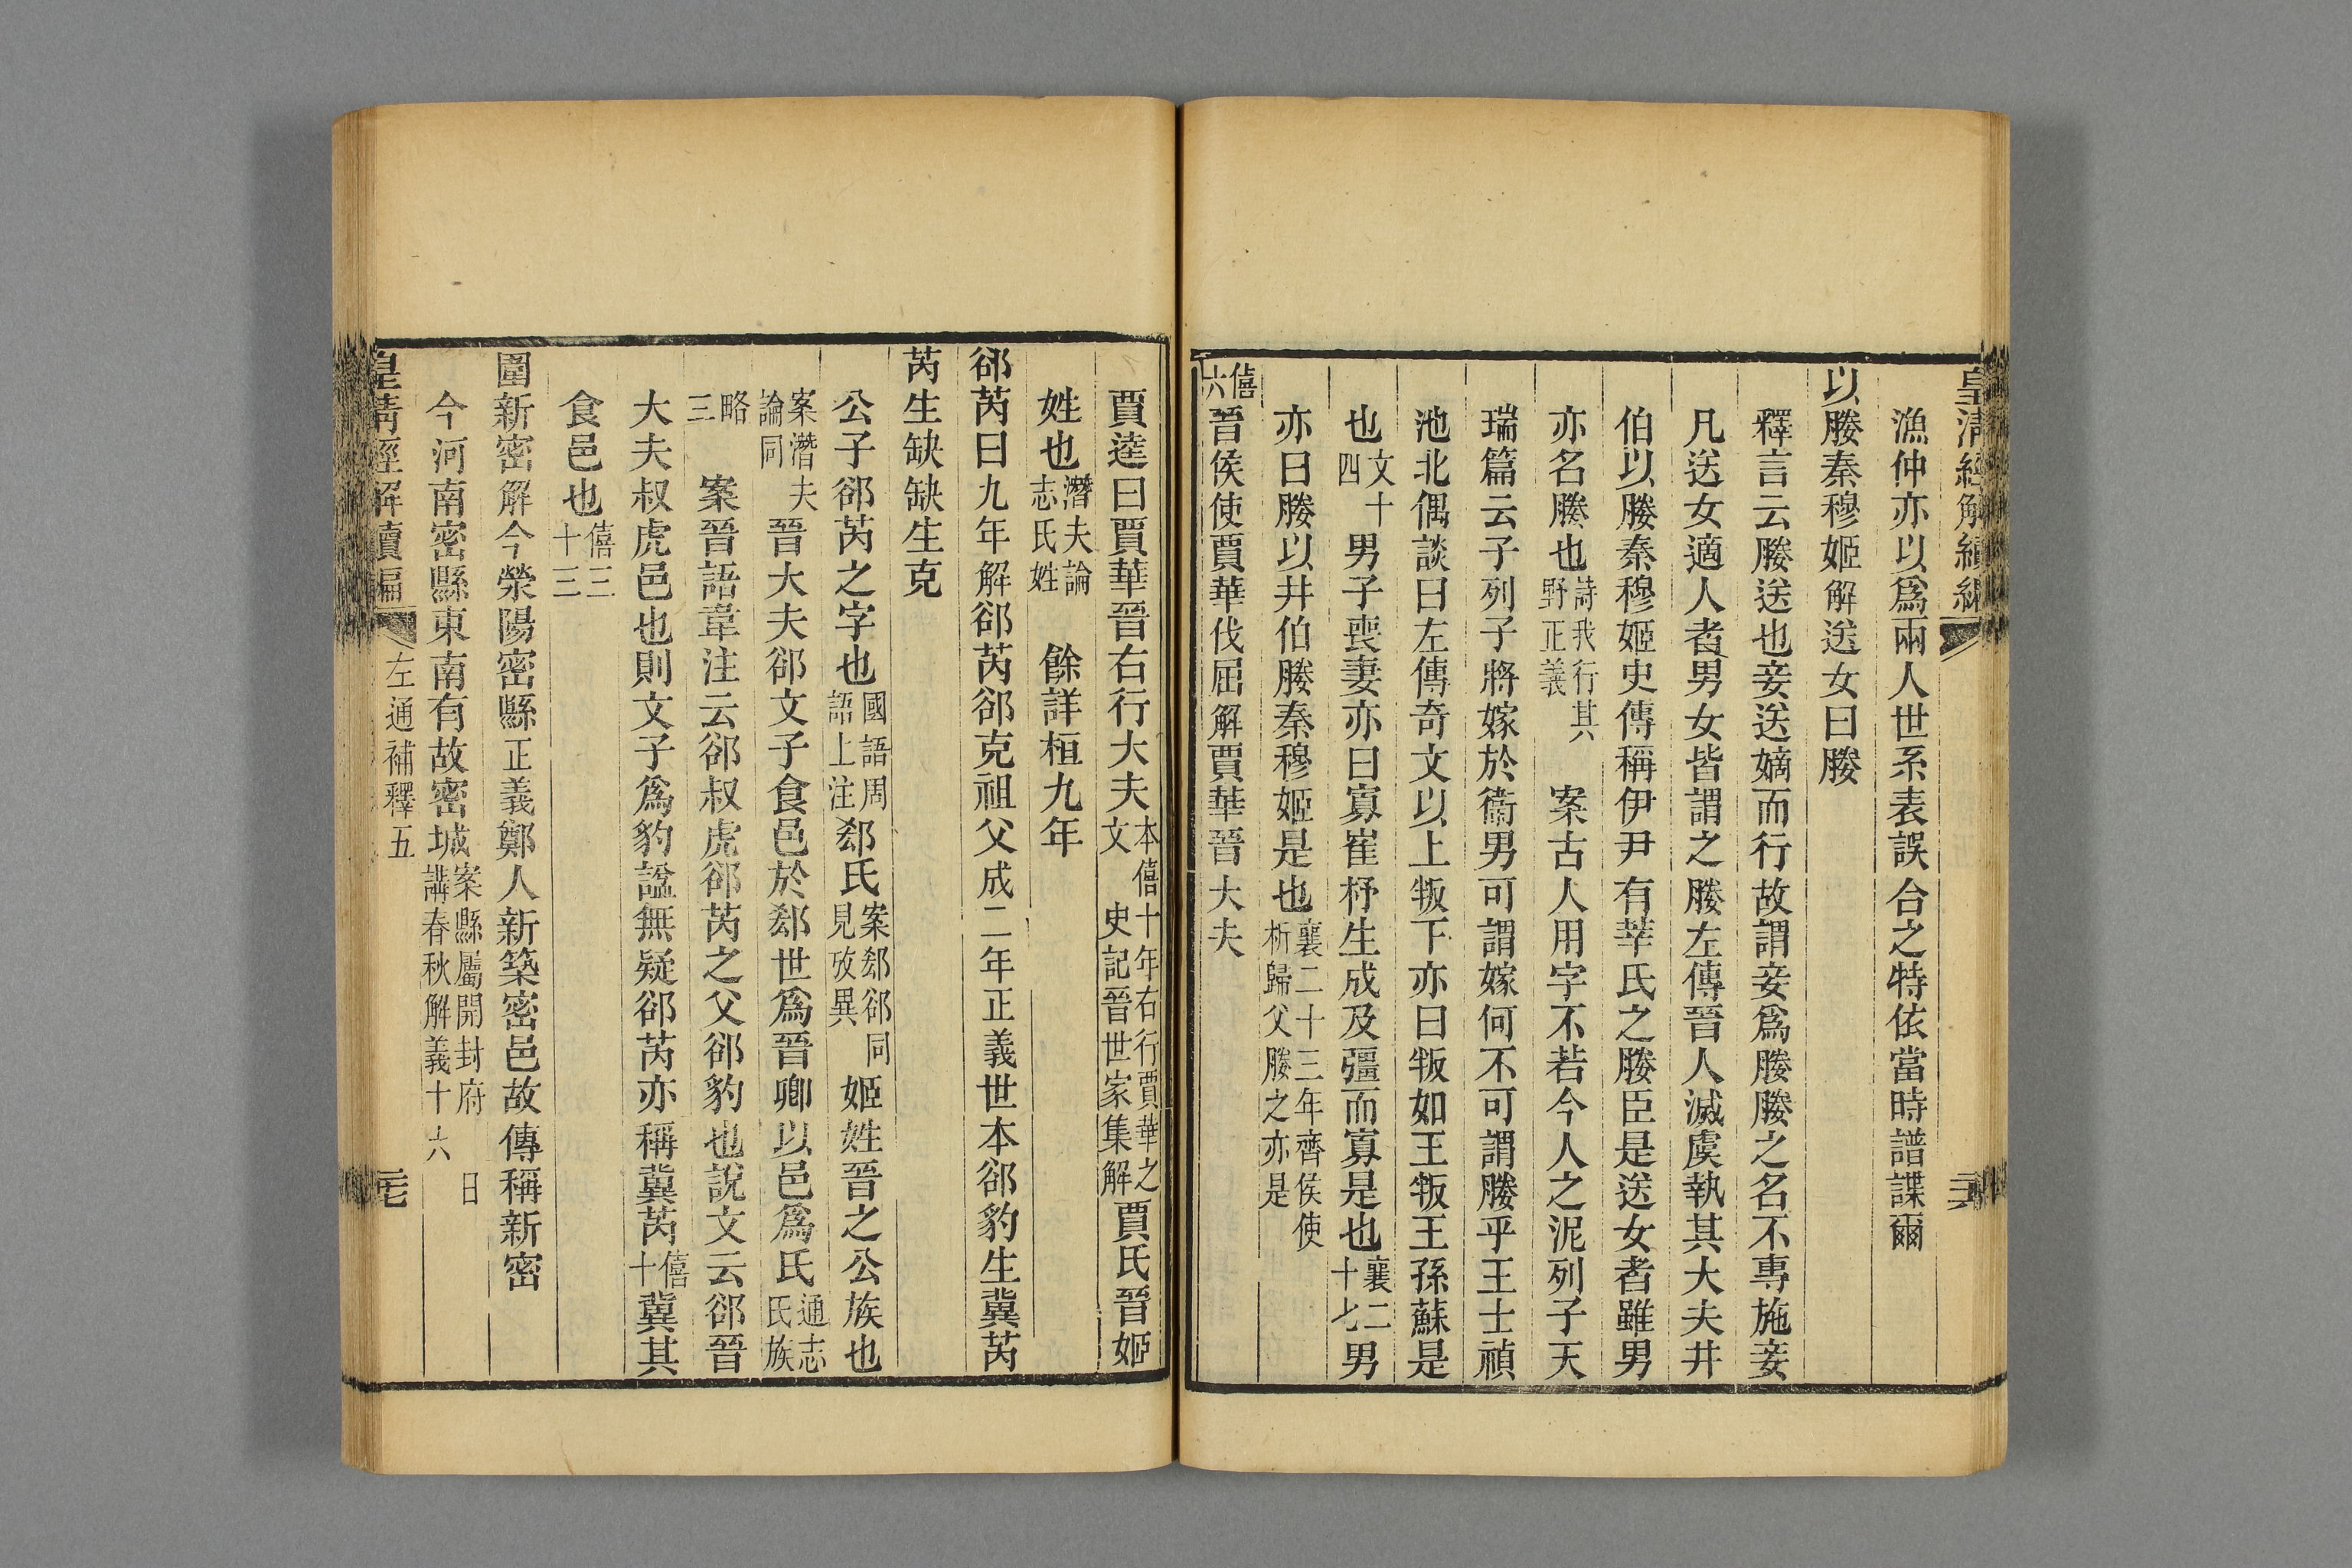 皇清經解續編
二六
漁仲亦以爲兩人世系表誤合之特依當時譜諜爾
以媵秦穆姬解送女曰媵
釋言云媵送也妾送嫡而行故謂妾爲媵媵之名不專施妾
凡送女適人者男女皆謂之媵左傳晉人滅虞執其大夫井
伯以媵秦穆姬史傳稱伊尹有莘氏之媵臣是送女者雖男
亦名媵也詩我行其野正義 案古人用字不若今人之泥列子天
瑞篇云子列子將嫁於衞男可謂嫁何不可謂媵乎王士禎
池北偶談曰左傳奇文以上叛下亦曰叛如王叛王孫蘇是
也文十四男子喪妻亦曰寡崔杼生成及彊而寡是也襄二十七男
亦曰媵以井伯媵秦穆姬是也襄二十三年齊侯使析歸父媵之亦是
僖六晉侯使賈華伐屈解賈華晉大夫
賈逵曰賈華晉右行大夫本僖十年右行賈華之文 史記晉世家集解賈氏晉姬
姓也潛夫論志氏姓 餘詳桓九年
郤芮曰九年解郤芮郤克祖父成二年正義世本郤豹生冀芮
芮生缺缺生克
公子郤芮之字也國語周語上注郄氏案郄郤同見攷異 姬姓晉之公族也
案潛夫論同 晉大夫郤文子食邑於郄世爲晉卿以邑爲氏通志氏族
略三 案晉語韋注云郤叔虎郤芮之父郤豹也說文云郤晉
大夫叔虎邑也則文子爲豹謚無疑郤芮亦稱冀芮僖十冀其
食邑也僖三十三
圍新密解今滎陽密縣正義鄭人新築密邑故傳稱新密
今河南密縣東南有故密城案縣屬開封府 日講春秋解義十六
皇清經解續編
左通補釋五
二七